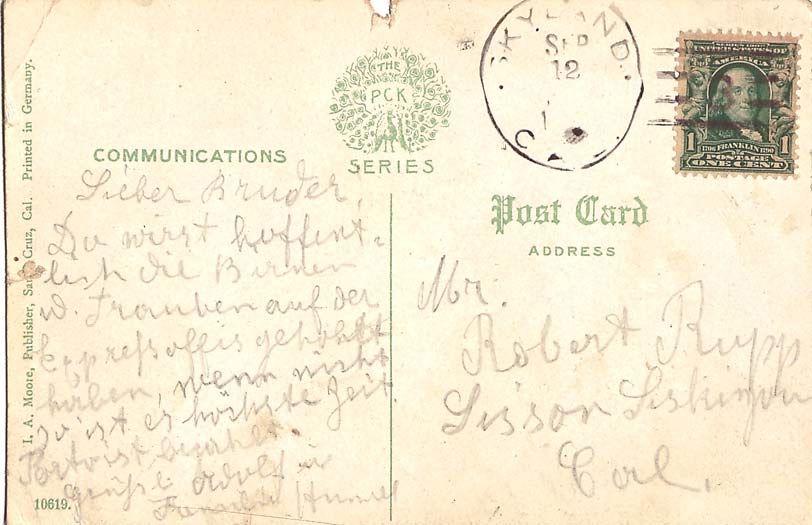 I. A. Moore, Publisher, Santa Cruz, Cal. Printed in Germany.
THE
PCK
SERIES
SKYLAND
SEP
12
CAL
SERIES 1902
UNITED STATES OF
AMERICA
1706 FRANKLIN 1790
1 1
POSTAGE
ONE CENT
COMMUNICATIONS
Post Card
ADDRESS
Lieber Bruder,
Du wirst hoffent-
lich die Birnen
u. Trauben auf der
Expressoffis gehohlt
haben, wenn nicht
so ist es höchste Zeit
Porto ist bezahlt.
Grüße Adolf u
Familie
Mr.
Robert Rupp
Sisson Siskiyou
Cal.
10619.